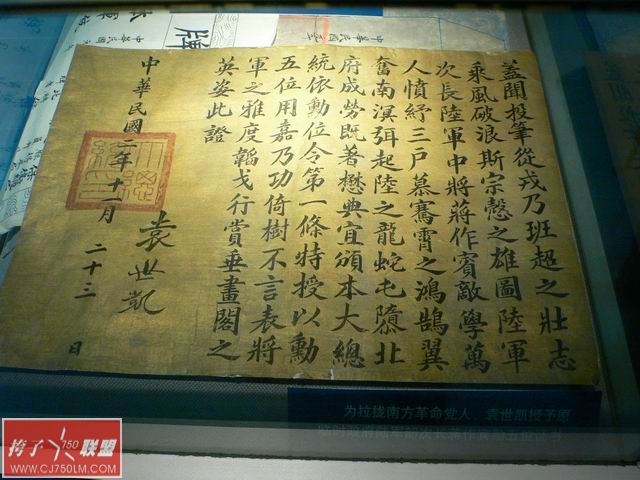 蓋聞投筆從戎乃班超之壯志
乘風破浪斯宗愨之雄圖陸軍
次長陸軍中將蔣作賓敵學萬
人憤紓三戶慕騫霄之鴻鵠翼
奮南溟弭起陸之龍蛇屯隳北
府成勞既著懋典宜頒本大總
統依勳位令第一條特授以勳
五位用嘉乃功倚樹不言表將
軍之雅度韜戈行賞垂畫閣之
英姿此證
袁世凱
中華民國二年十一月二十三日
牌
中華民國
为拉拢南方革命党人，袁世凯授予原
临时政府陆军部次长蒋作宾
挎子750联盟
WWW.CJ750LM.COM